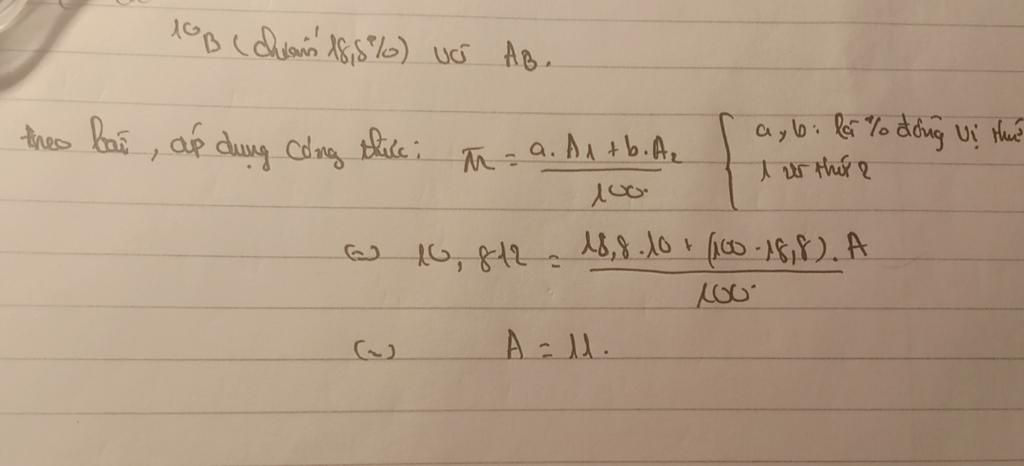 10B (chiếm 18,8%) và AB.
theo bài, áp dụng công thức: M̅ = a.A1 + b.A2 / 100 { a, b: là % đồng vị thứ
1 và thứ 2
(=) 10,812 = 18,8.10 + (100-18,8).A / 100
(=) A = 11.